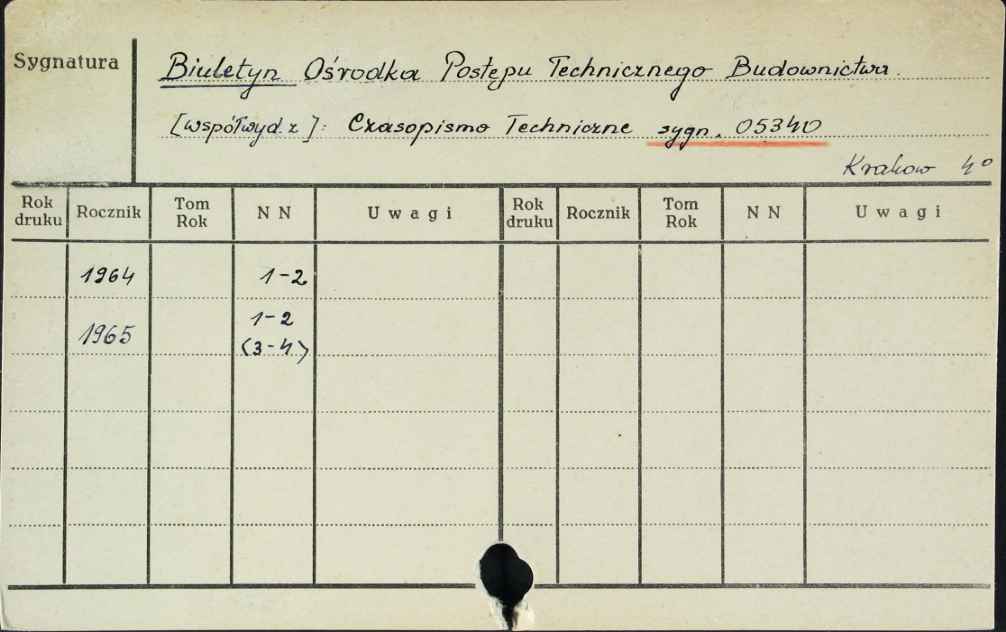 Sygnatura
Biuletyn Ośrodka Postępu Technicznego Budownictwa.
[współwyd. z]: Czasopismo Techniczne sygn. 05340
Krakow 4°
Rok druku Rocznik Tom Rok NN Uwagi Rok druku Rocznik Tom Rok NN Uwagi
1964 1-2
1965 1-2
(3-4)